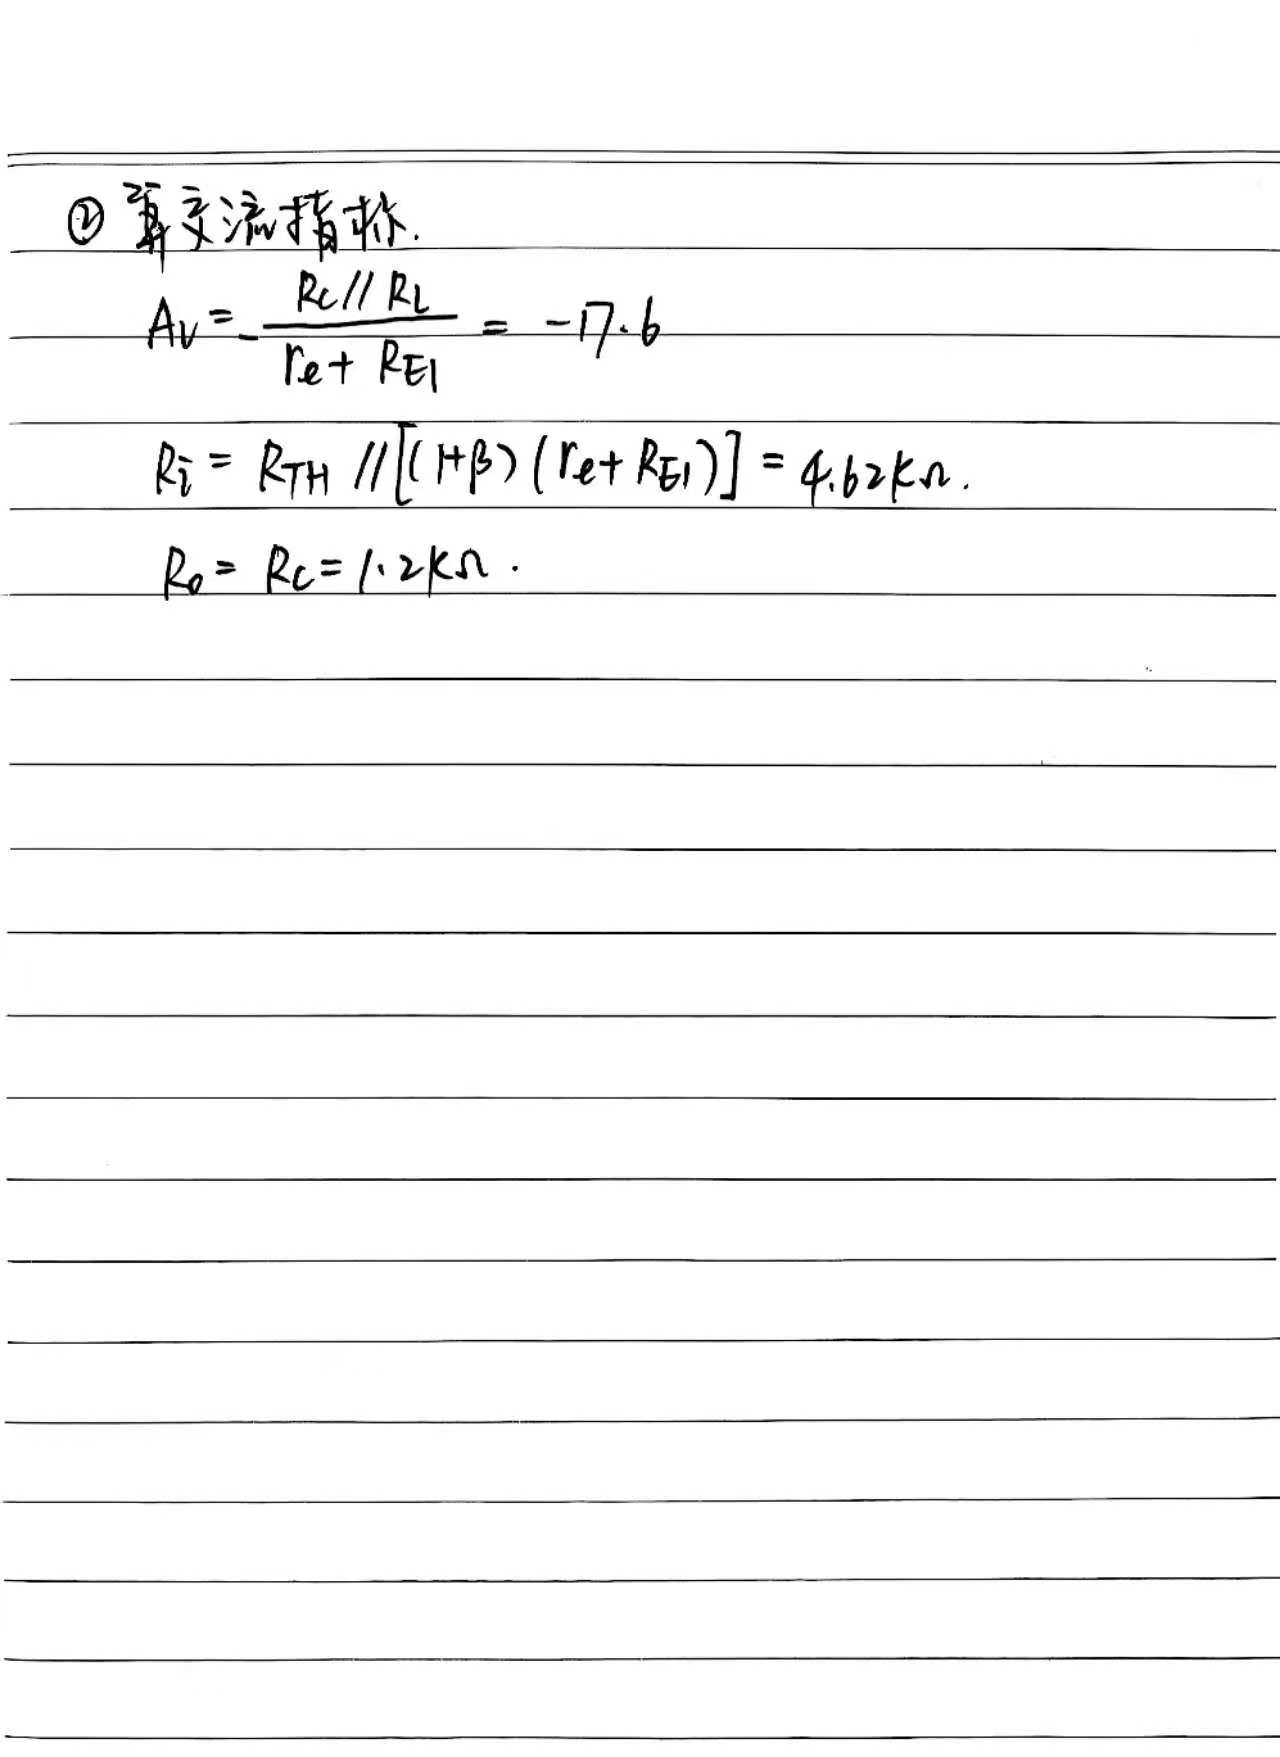 ② 算交流指标.
Av = - (Rc // RL) / (re + RE1) = -17.6
Ri = RTH // [(1+β)(re + RE1)] = 4.62kΩ.
Ro = Rc = 1.2kΩ.